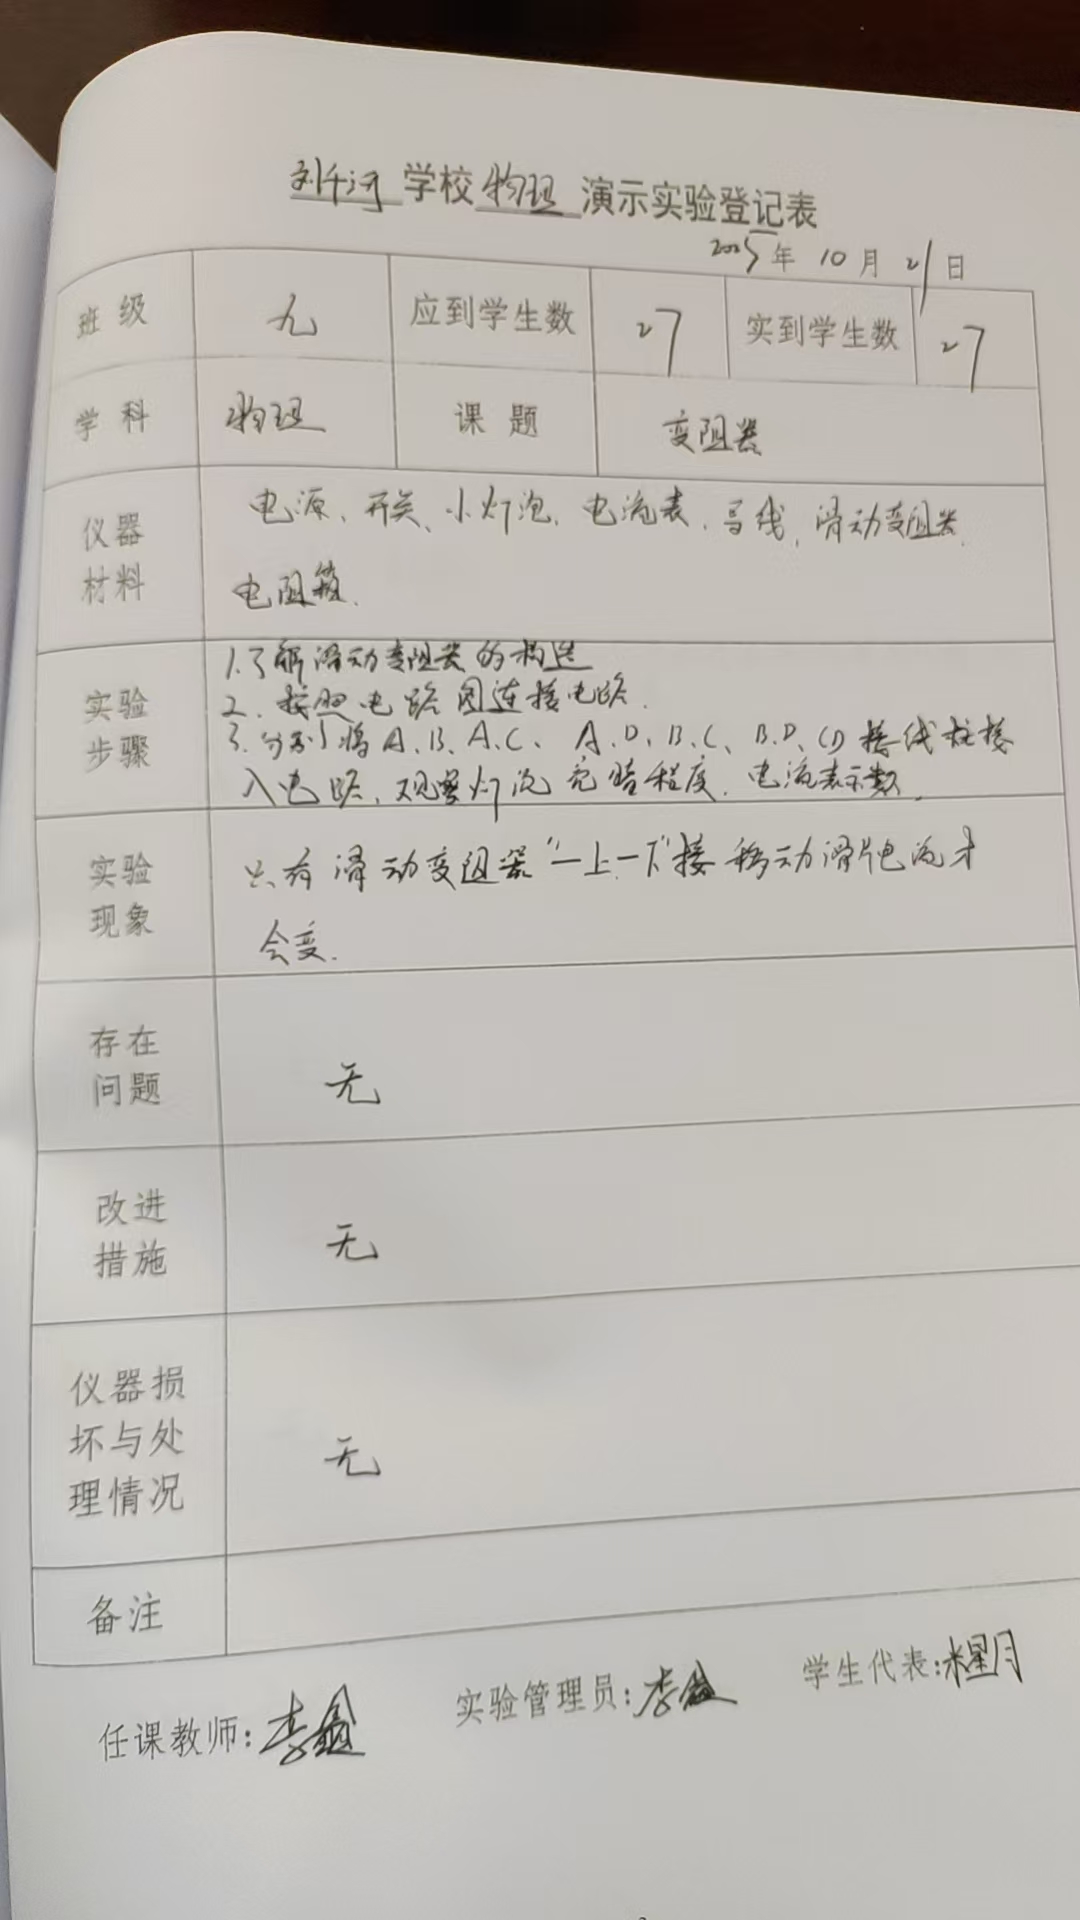 刘千河学校物理演示实验登记表
2025年10月21日
班级 九 应到学生数 27 实到学生数 27
学科 物理 课题 变阻器
仪器材料 电源、开关、小灯泡、电流表、导线、滑动变阻器、
电阻箱.
实验步骤 1.了解滑动变阻器的构造
2.按照电路图连接电路.
3.分别将A、B、A、C、A、D、B、C、B、D、CD接线柱接
入电路,观察灯泡亮暗程度、电流表示数.
实验现象 只有滑动变阻器“一上一下”接移动滑片电流才
会变.
存在问题 无
改进措施 无
仪器损坏与处理情况 无
备注
任课教师:李 实验管理员:李 学生代表:星月